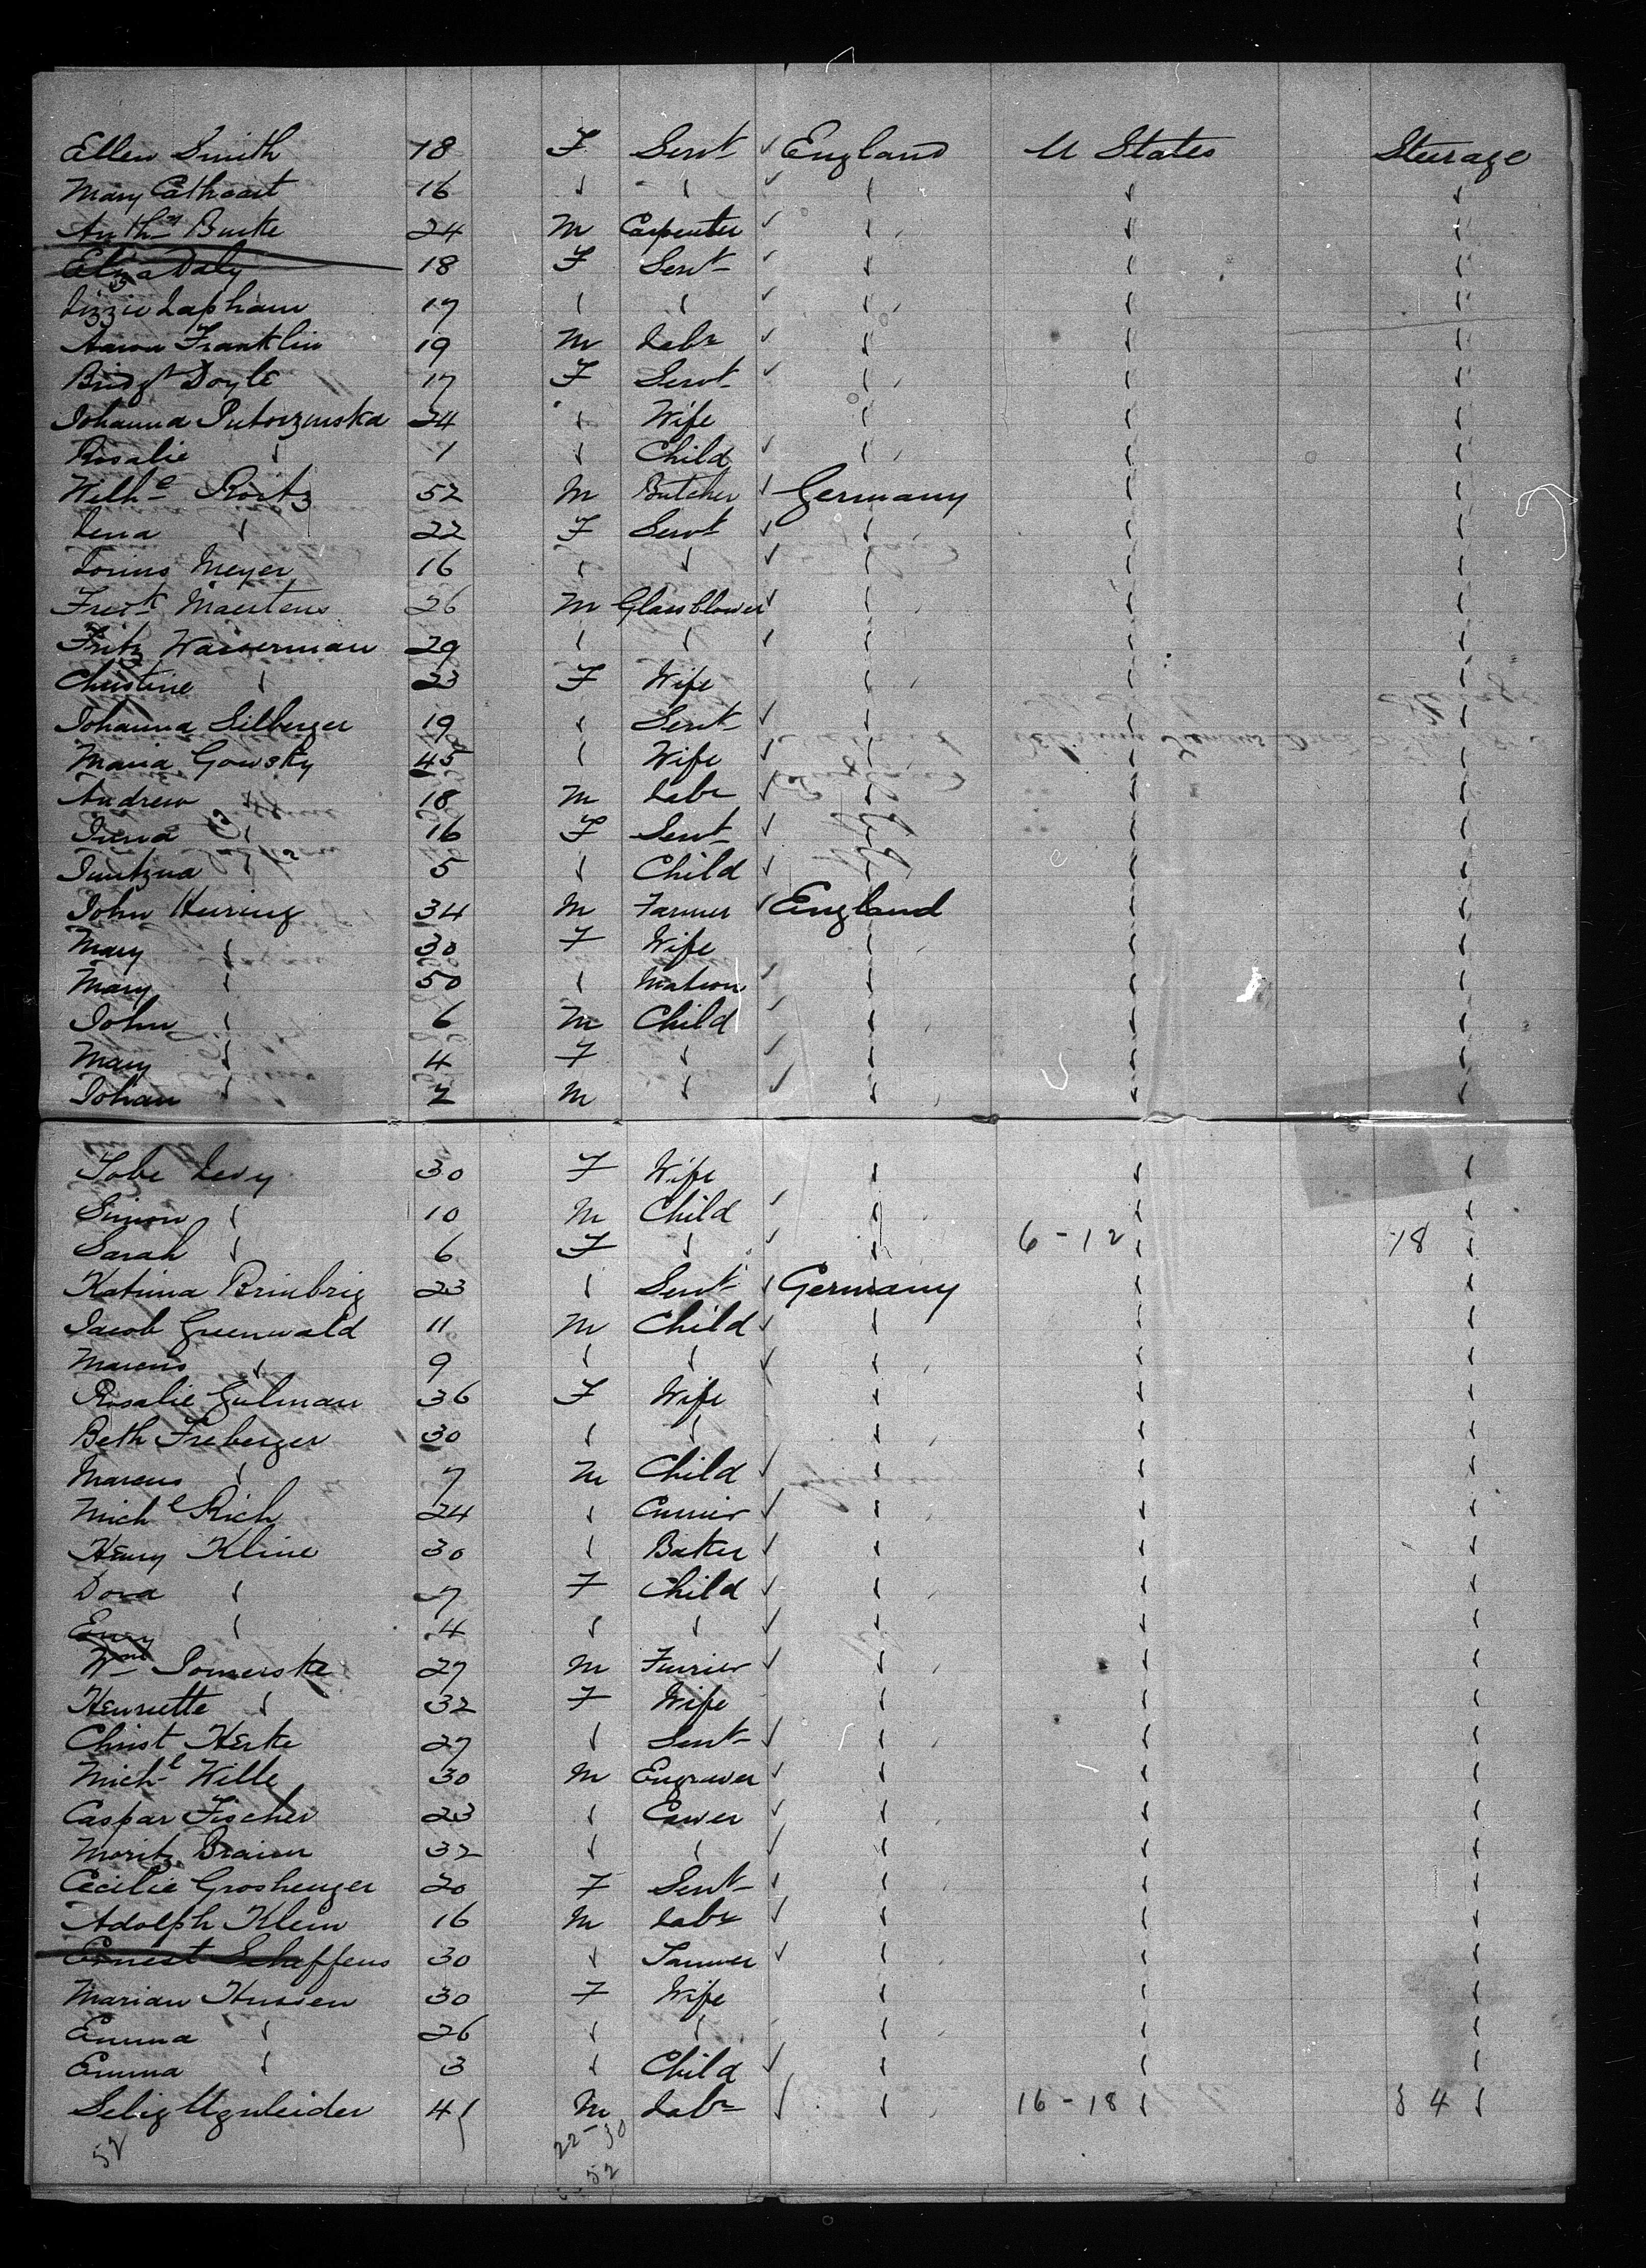 Ellen Smith 18 F Servt ✓ England U States Steerage
Mary Cathcart 16 ✓
Anthy Burke 24 M Carpenter ✓
Eliza Daly 18 F Servt ✓
Lizzie Lapham 17 ✓
Aaron Franklin 19 M Labr ✓
Bridgt Doyle 17 F Servt ✓
Johanna 24 Wife
Rosalie 1 Child ✓
Wilhe Roitz 52 M Butcher ✓ Germany
Lena 22 F Servt ✓
Meyer 16 ✓
Fredk Maertens 26 M Glassblower ✓
Fritz Wasserman 29 ✓
Christine 23 F Wife
Johanna Silberger 19 Servt ✓
Maria Gowsky 45 Wife ✓
Andrew 18 M Labr ✓
16 F Servt ✓
5 Child ✓
John Huring 34 M Farmer ✓ England
Mary 30 F Wife
Mary 50 Matron ✓
John 6 M Child ✓
Mary 4 F ✓
Johan 2 M ✓
Tobe Levy 30 F Wife
Simon 10 M Child ✓
Sarah 6 F ✓ 6-12 18
Katrina Brinbrig 23 Servt ✓ Germany
Jacob Greenwald 11 M Child ✓
Marcus 9 ✓
Rosalie Gulman 36 F Wife
Beth Freberger 30
Marcus 7 M Child ✓
Michl Rich 24 Currier ✓
Henry Kline 30 Baker ✓
Dora 7 F Child ✓
4 ✓
Wm Somerske 27 M Furrier ✓
Henriette 32 F Wife
Christ Herke 27 Servt ✓
Michl Wille 30 M Engraver ✓
Caspar Fischer 23 ✓
Moritz Braun 32 ✓
Cecilie Groshenger 20 F Servt ✓
Adolph Klein 16 M Labr ✓
Ernest Schaffens 30 Tanner ✓
Marian Hussen 30 F Wife
Emma 26
Emma 3 Child ✓
Selig 41 M Labr ✓ 16-18 34
52 22-30
52